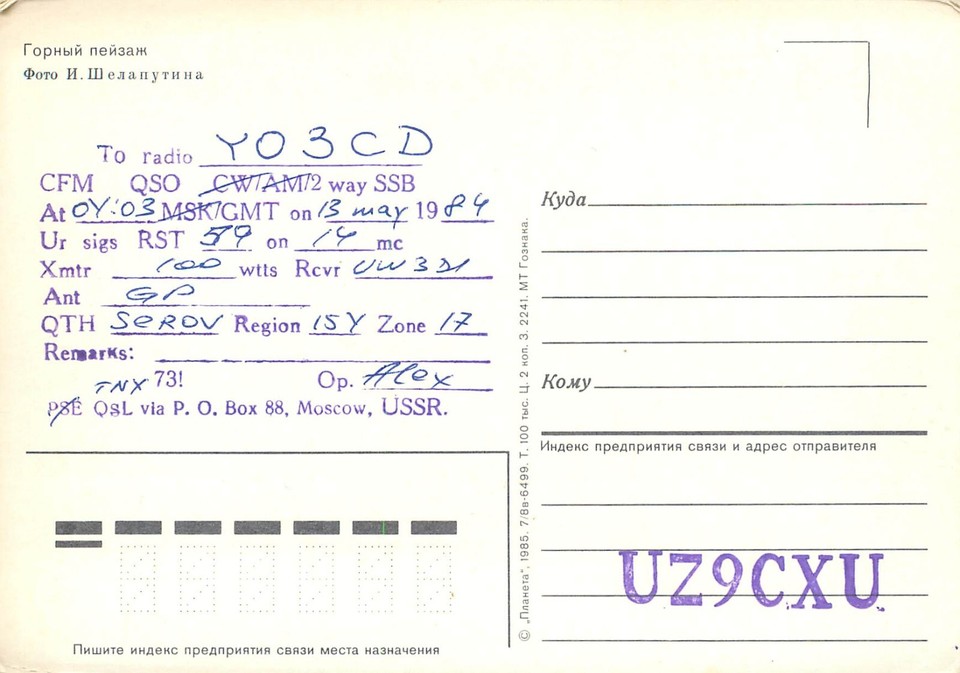 Горный пейзаж
Фото И. Шелапутина
To radio YO3CD
CFM QSO CW/AM/2 way SSB
At 04:03 MSK/GMT on 13 may 1984
Ur sigs RST 59 on 14 mc
Xmtr 100 wtts Rcvr UW3DI
Ant GP
QTH SEROV Region 154 Zone 17
Remarks:
TNX 73! Op. Alex
PSE QSL via P. O. Box 88, Moscow, USSR.
Куда
Кому
Индекс предприятия связи и адрес отправителя
UZ9CXU
Пишите индекс предприятия связи места назначения
© „Планета", 1985. 7/8в-6499. Т. 100 тыс. Ц. 2 коп. З. 2241. МТ Гознака.